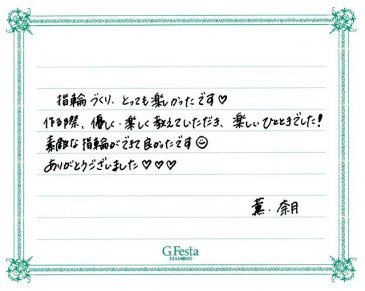 指輪づくり、とっても楽しかったです♡
作る際、優しく・楽しく教えていただき、楽しいひとときでした!
素敵な指輪ができて良かったです☺
ありがとうございました♡♡♡
薫・奈月
G.Festa
DIAMOND